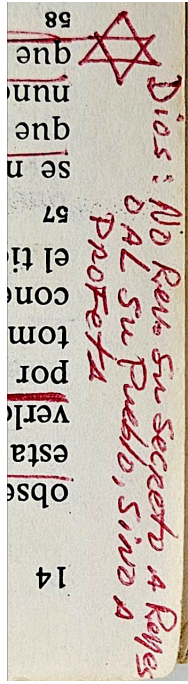 14
obse
esta
verlo
por
tom
cono
el ti
57
se n
que
nunc
que
58
Dios: No su secreto A Reyes
O AL su Pueblo, sino A
profeta